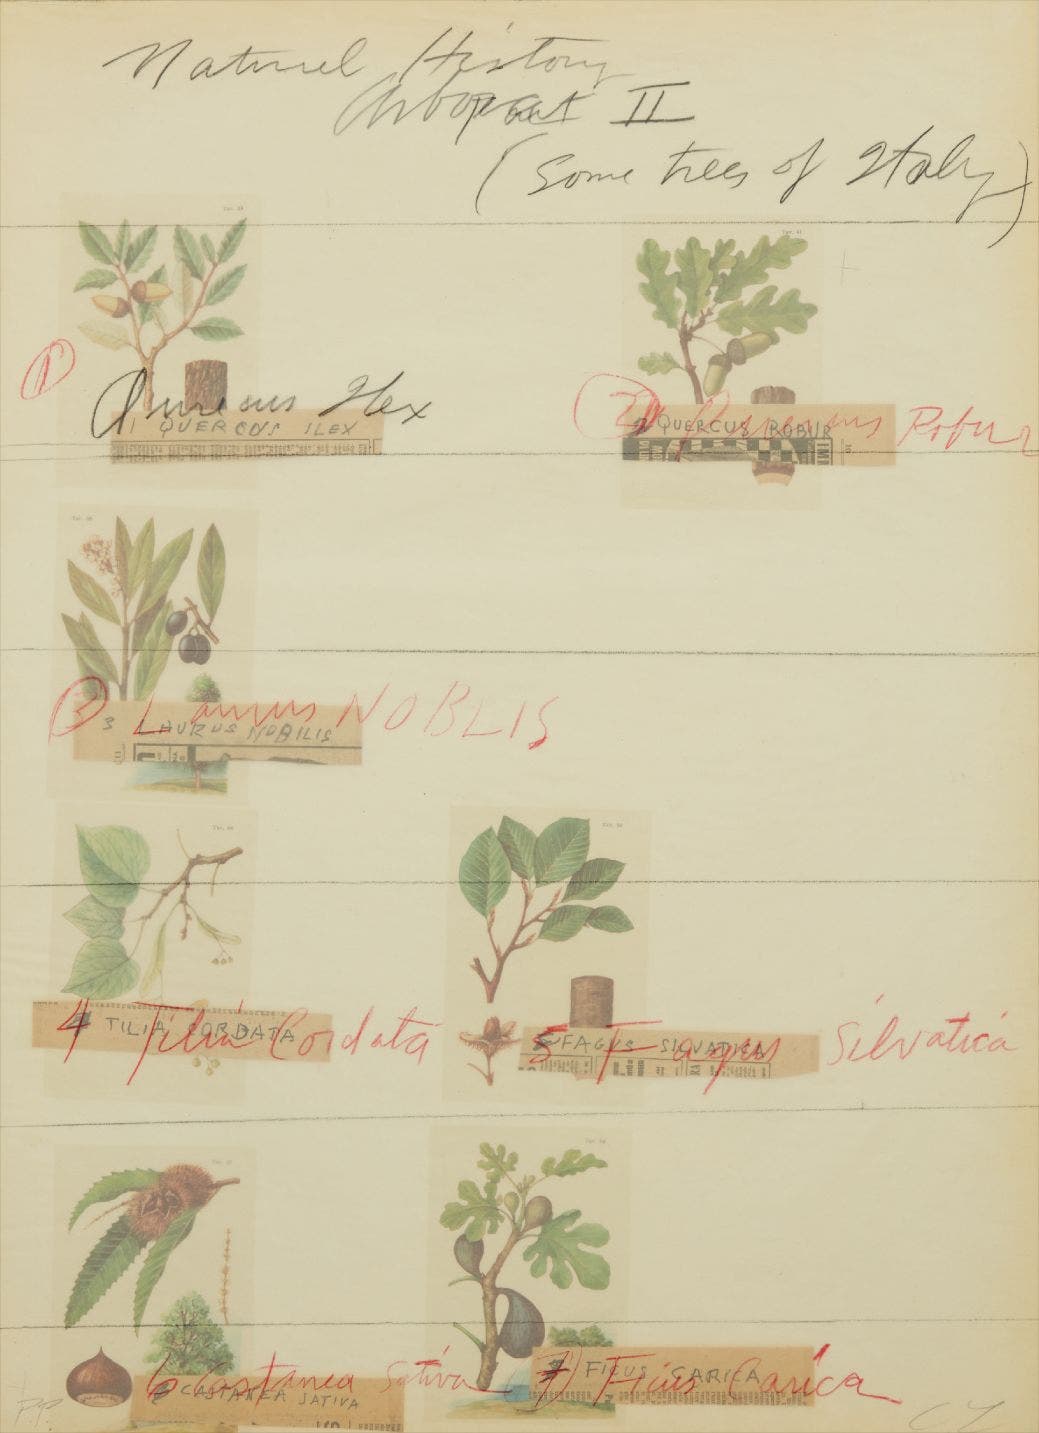 Natural History
Part II
(Some trees of Italy)
1
Quercus Ilex
1 QUERCUS ILEX
2 Quercus Robur
2 QUERCUS ROBUR
3 Laurus NOBLIS
3 LAURUS NOBILIS
4 Tilia Cordata
TILIA CORDATA
5 Fagus Silvatica
FAGUS SILVATICA
6 Castanea Sativa
CASTANEA SATIVA
7) Ficus Carica
FICUS CARICA
P.P.